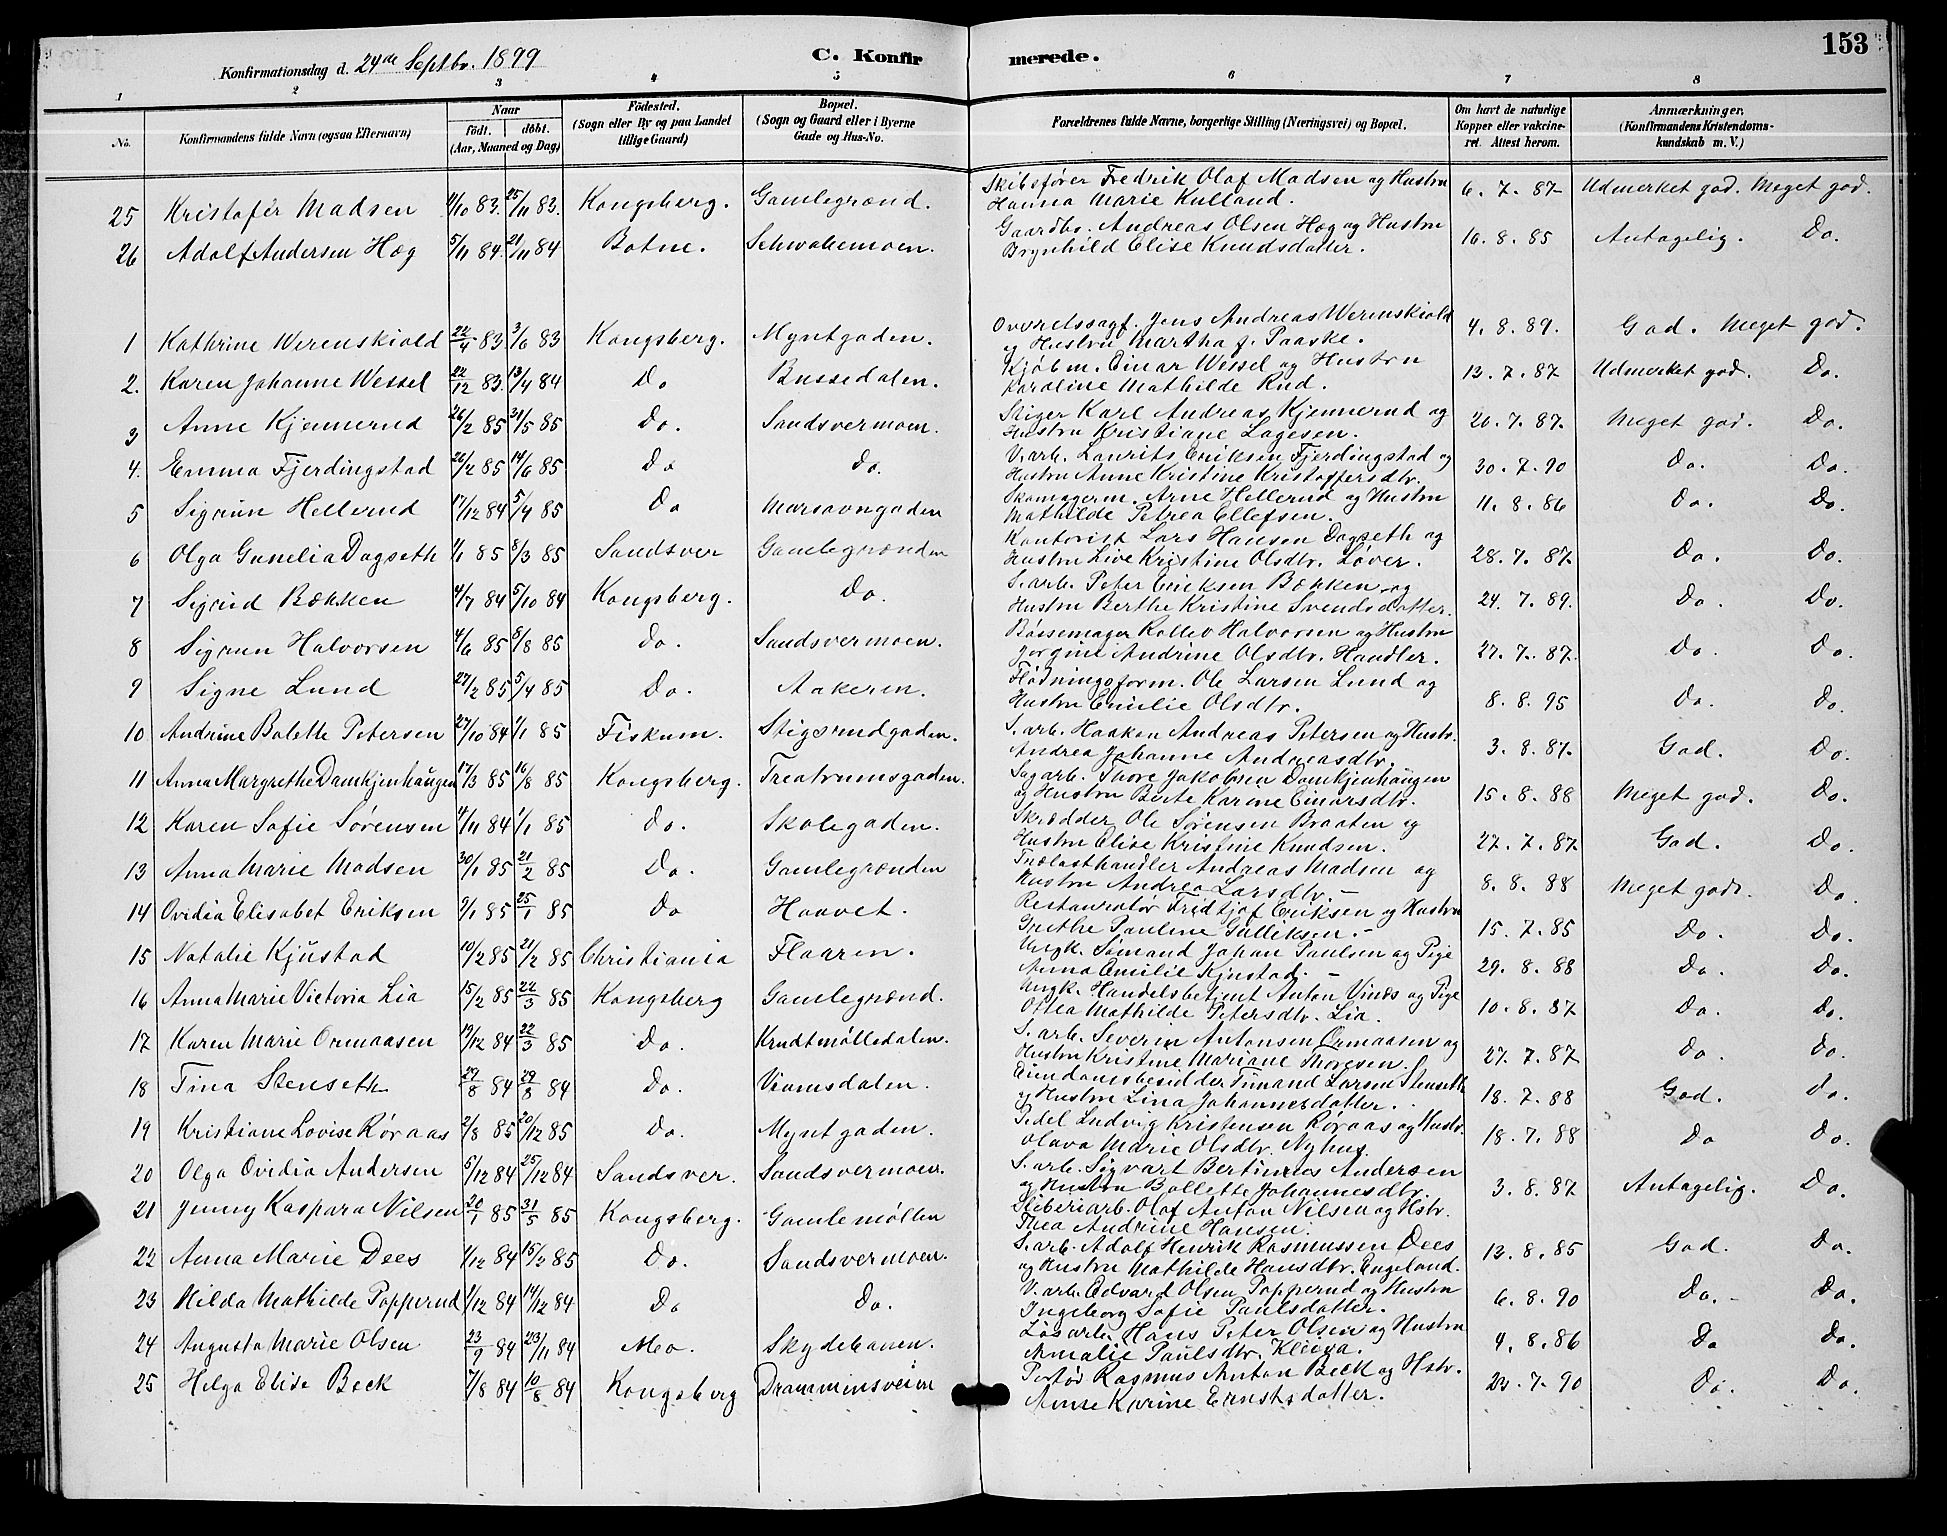 Konfirmationsdag d. 24de Septbr. 1899
C. Konfirmerede.
153
1 2 3 4 5 6 7 8
No. Konfirmandens fulde Navn (ogsaa Efternavn) Naar födt. döbt. (Aar, Maaned og Dag) Födested. (Sogn eller By og paa Landet tillige Gaard) Bopæl. (Sogn og Gaard eller i Byerne Gade og Hus-No. Forældrenes fulde Navne, borgerlige Stilling (Næringsvei) og Bopæl. Om havt de naturlige Kopper eller vaccineret. Attest herom. Anmærkninger, (Konfirmandens Kristendomskundskab m. V.)
25 Kristofer Madsen 1/10 83. 25/11 83. Kongsberg. Gamlegrænd. Skibsfører Fredrik Olaf Madsen og Hustru Hanna Marie Kulland. 6.7.87 Udmerket god. Meget god.
26 Adolf Andersen Hæg 5/11 84. 21/11 84 Botne. Schwabemoen. Gaardbr. Andreas Olsen Hæg og Hustru Brynhild Elise Knudsdatter. 16.8.85 Antagelig. Do.
1 Kathrine Werenskiold 22/4 83 3/6 83 Kongsberg. Myntgaden. Overretssagf. Jens Andreas Werenskiold og Hustru Martha f. Paaske. 4.8.89. God. Meget god.
2. Karen Johanne Wessel 22/12 83 13/4 84 Do Bussedalen. Kjøbm. Einar Wessel og Hustru Karoline Mathilde Rud. 13.7.87 Udmerket god. Do.
3 Anne Kjennerud 26/2 85 31/5 85 Do. Sandsvermoen. Stiger Karl Andreas Kjennerud og Hustru Kristiane Lagesen. 20.7.87. Meget god. Do.
4. Emma Fjerdingstad 26/2 85 14/6 85 Do Do. V.arb. Laurits Eriksen Fjerdingstad og Hustru Anne Kristine Kristoffersdtr. 30.7.90 Do. Do.
5 Sigrun Hellerud 17/12 84 5/4 85 Do Skomagerm. Arne Hellerud og Hustru Mathilde Petrea Ellefsen. 11.8.86 Do. Do.
6 Olga Gunelia Dagseth 1/1 85 8/3 85 Sandsver Gamlegrænden Kontorist Lars Hansen Dagseth og Hustru Live Kristine Olsdtr. Løver. 28.7.87. Do. Do.
7 Sigrid Bækken 4/7 84 5/10 84 Kongsberg. Do. S.arb. Peter Eriksen Bækken og Hustru Berthe Kristine Svendsdatter. 24.7.89. Do. Do.
8 Sigrun Halvorsen 4/6 85 8/8 85 Do. Sandsvermoen. Bøssemager Rollev Halvorsen og Hustru Jorgine Andrine Olsdtr. Handler. 27.7.87. Do. Do.
9 Signe Lund 27/2 85 5/4 85 Do. Aakeren. Flødningsform. Ole Larsen Lund og Hustru Emilie Olsdtr. 8.8.95 Do. Do.
10 Andrine Bolette Petersen 27/10 84 1/1 85 Fiskum. Stigsrudgaden. S.arb. Haaken Andreas Petersen og Hustr. Andrea Johanne Andreasdtr. 3.8.87. God. Do.
11 Anna Margrethe Damkjenhaugen 17/3 85 16/8 85 Kongsberg. Treatrumsgaden. Sagarb. Thore Jakobsen Damkjenhaugen og Hustru Berte Karine Einarsdtr. 15.8.88 Meget god. Do.
12 Karen Sofie Sørensen 4/11 84 1/1 85 Do. Skolegaden. Skrædder Ole Sørensen Braaten og Hustru Elise Kristine Knudsen. 27.7.87 God. Do.
13 Anna Marie Madsen 30/1 85 21/2 85 Do. Gamlegrænden Trælasthandler Andreas Madsen og Hustru Andrea Larsdtr. 8.8.88 Meget god. Do.
14 Ovidia Elisabet Eriksen 2/1 85 25/1 85 Do Haavet. Restauratør Fridtjof Eriksen og Hustru Grethe Pauline Gulliksen. 15.7.85 Do. Do.
15 Natalie Kjustad 10/2 85 21/2 85 Christiania Flaaren. Ungk. Sømand Johan Paulsen og Pige Anna Emilie Kjustad. 29.8.88 Do. Do.
16 Anna Marie Victoria Lia 15/2 85 22/3 85 Kongsberg Gamlegrænd. Ungk. Handelsbetjent Anton Vinæs og Pige Ottea Mathilde Petersdtr. Lia. 10.8.87 Do. Do.
17 Karen Marie Ormaasen 19/12 84 22/3 85 Do. Krudtmølledalen. S.arb. Severin Antonsen Ormaasen og Hustru Kristine Mariane Thoresen. 27.7.87 Do. Do.
18 Tina Stenseth 27/8 84 29/8 84 Do. Viamsdalen. Eiendomsbesidder Timand Larsen Stenseth og Hustru Lina Johannesdatter. 18.7.88 God. Do.
19 Kristiane Lovise Røraas 2/8 85 20/12 85 Do. Myntgaden. Pedel Ludvig Kristensen Røraas og Hustr. Olava Marie Olsdtr. Nyhus. 18.7.88 Do Do.
20 Olga Ovidia Andersen 5/12 84 25/12 84 Sandsver. Sandsvermoen. S.arb. Sigvart Bertinius Andersen og Hustru Bollette Johannesdtr. 3.8.87 Antagelig. Do.
21 Jenny Kaspara Nilsen 20/1 85 31/5 85 Kongsberg. Gamlemøllen Sliberiarb. Olaf Anton Nilsen og Hstr. Thea Andrine Hansen.
22 Anna Marie Dees 1/12 84 15/2 85 Do. Sandsvermoen. S.arb. Adolf Henrik Rasmussen Dees og Hustru Mathilde Hansdtr. Engeland. 13.8.85 God. Do.
23 Hilda Mathilde Popperud 1/12 84 14/12 84 Do Do. V.arb. Edvard Olsen Popperud og Hustru Ingeborg Sofie Paulsdatter. 6.8.90 Do. Do.
24 Augusta Marie Olsen 23/9 84 23/11 84 Mo. Skydebanen. Løsarb. Hans Peter Olsen og Hustru Amalie Paulsdtr. 4.8.86 Do Do.
25 Helga Elise Beck 7/8 84 10/8 84 Kongsberg Dramminsveien Portør Rasmus Anton Beck og Hstr. Anne Karine Ernstsdatter. 23.7.90 Do. Do.